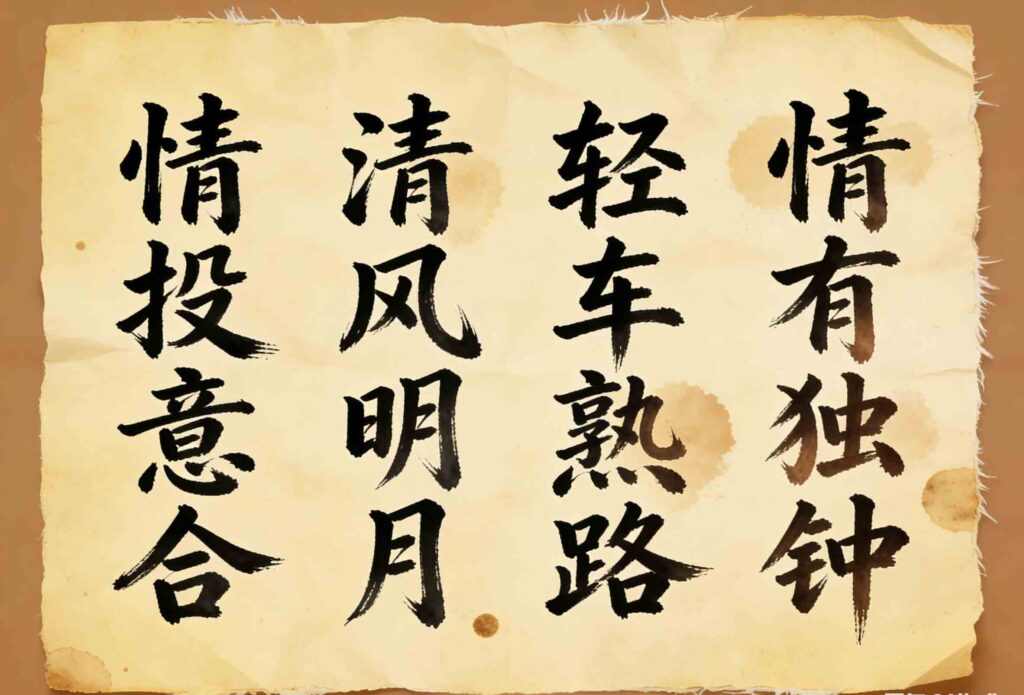 情有独钟
轻车熟路
清风明月
情投意合